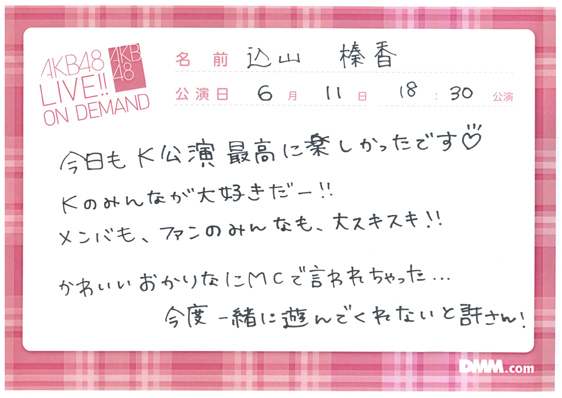 AKB48
LIVE!!
ON DEMAND
AKB
48
名前 込山 榛香
公演日 6月 11日 18:30 公演
今日もK公演 最高に楽しかったです♡
Kのみんなが大好きだー!!
メンバも、ファンのみんなも、大スキスキ!!
かわいいおかりなにMCで言われちゃった...
今度 一緒に遊んでくれないと許さん!
DMM.com